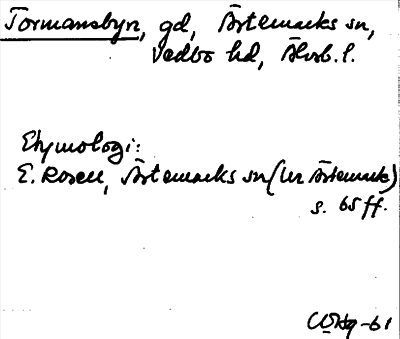 Tormansbyn, gd, Ärtemarks sn,
Vedbo hd, Älvsb. l.
Etymologi:
E. Rosell, Ärtemarks sn (ur Ärtemark)
s. 65 ff.
-61